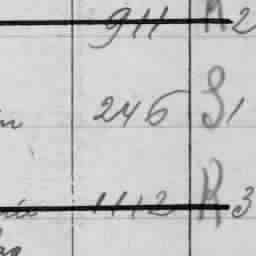 911 R2
246 S1
1112 R3